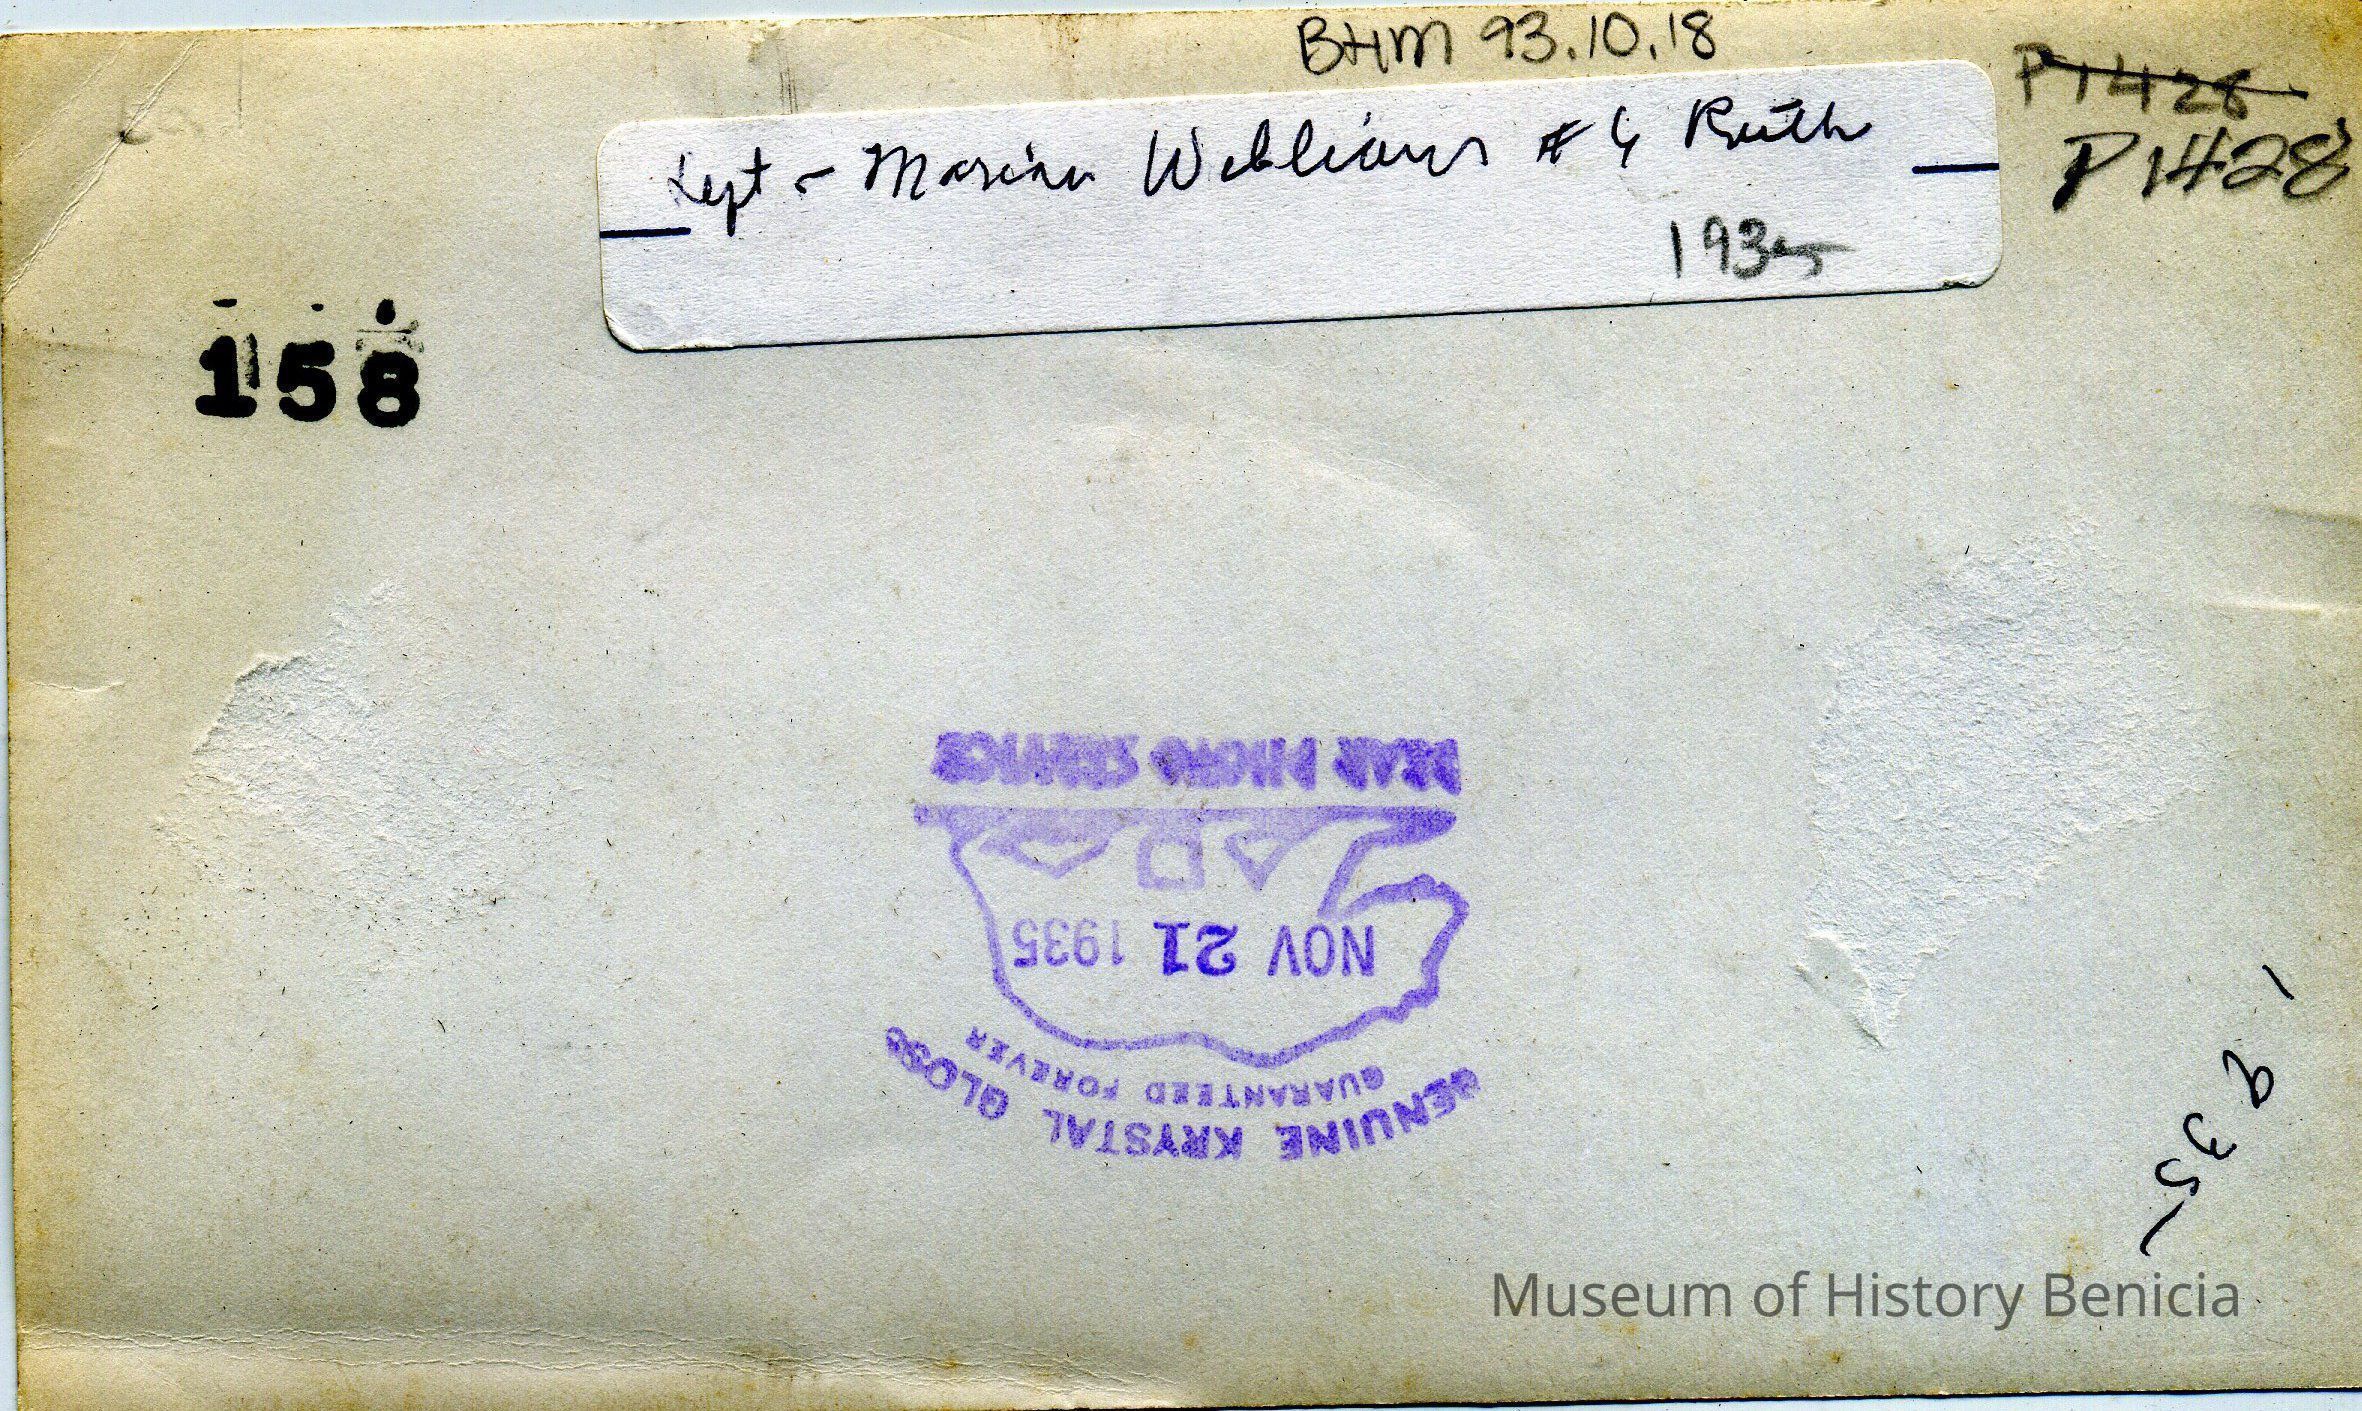 BHM 93.10.18
P1428
P1428
Left - Marian Williams #4 Ruth
1935
158
BEAR PHOTO SERVICE
NOV 21 1935
GUARANTEED FOREVER
GENUINE KRYSTAL GLOSS
1935
Museum of History Benicia